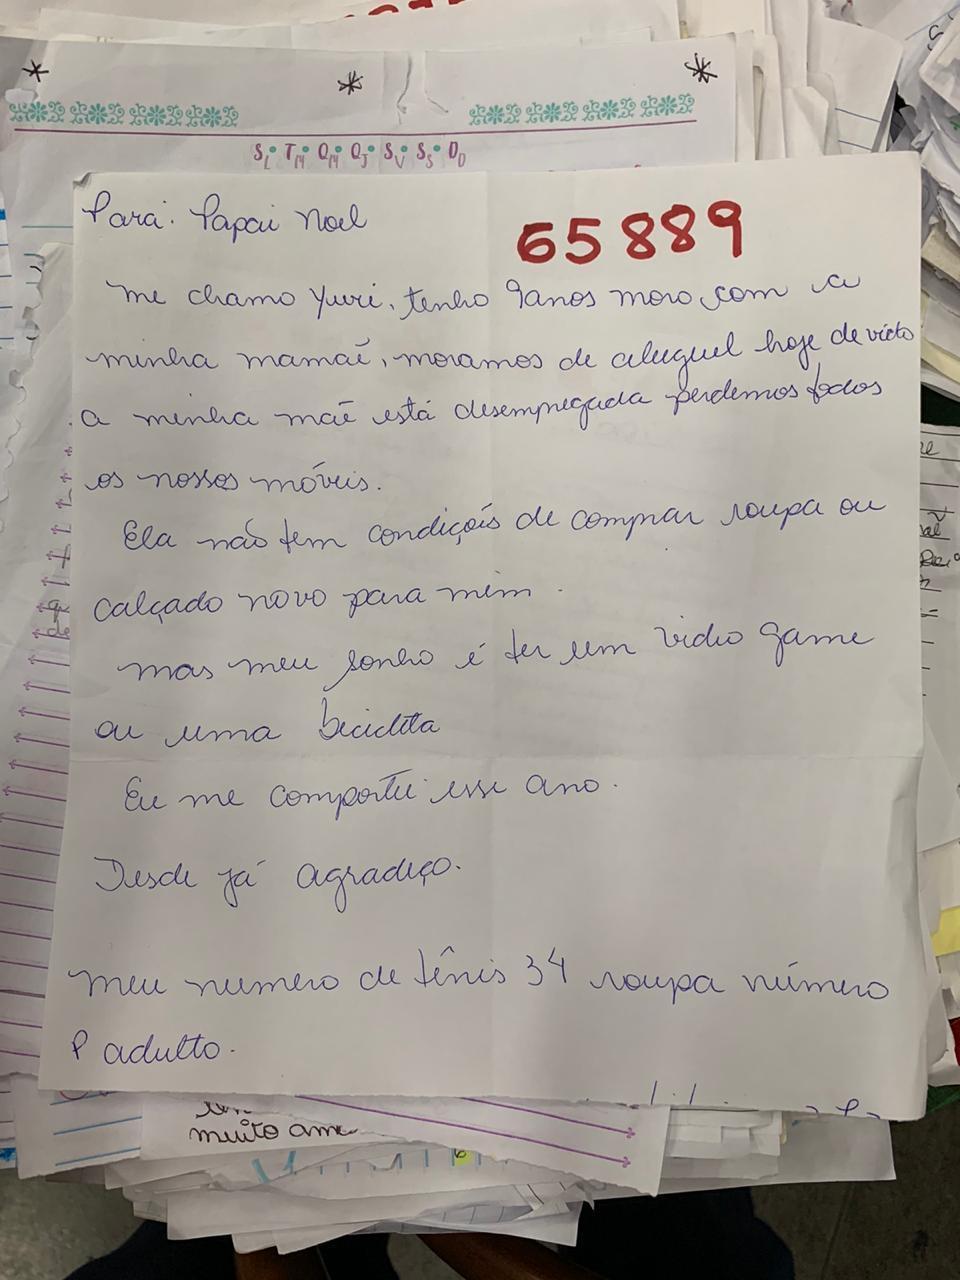 S L T M Q M Q J S V S S D D
Para: Papai Noel
65889
me chamo Yuri, tenho 9anos moro com a
minha mamãe, moramos de aluguel hoje de visto
a minha mãe está desempregada perdemos todos
os nossos móveis.
Ela não tem condições de comprar roupa ou
calçado novo para mim.
mas meu sonho é ter um video game
ou uma bicicleta
Eu me comportei esse ano.
Desde já agradeço.
meu numero de tênis 34 roupa número
P adulto.
muito ame